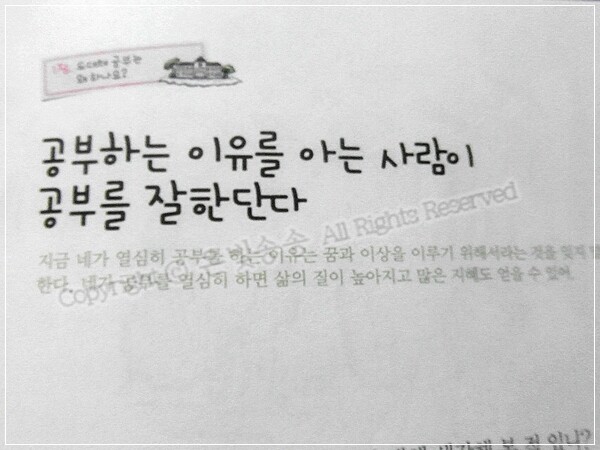 공부는
왜 하나요?
공부하는 이유를 아는 사람이
공부를 잘한단다
지금 네가 열심히 공부를 하는 이유는 꿈과 이상을 이루기 위해서라는 것을 잊지
한다. 네가 공부를 열심히 하면 삶의 질이 높아지고 많은 지혜도 얻을 수 있어
Copyright (c) All Rights Reserved
생각해 본 적 있니?